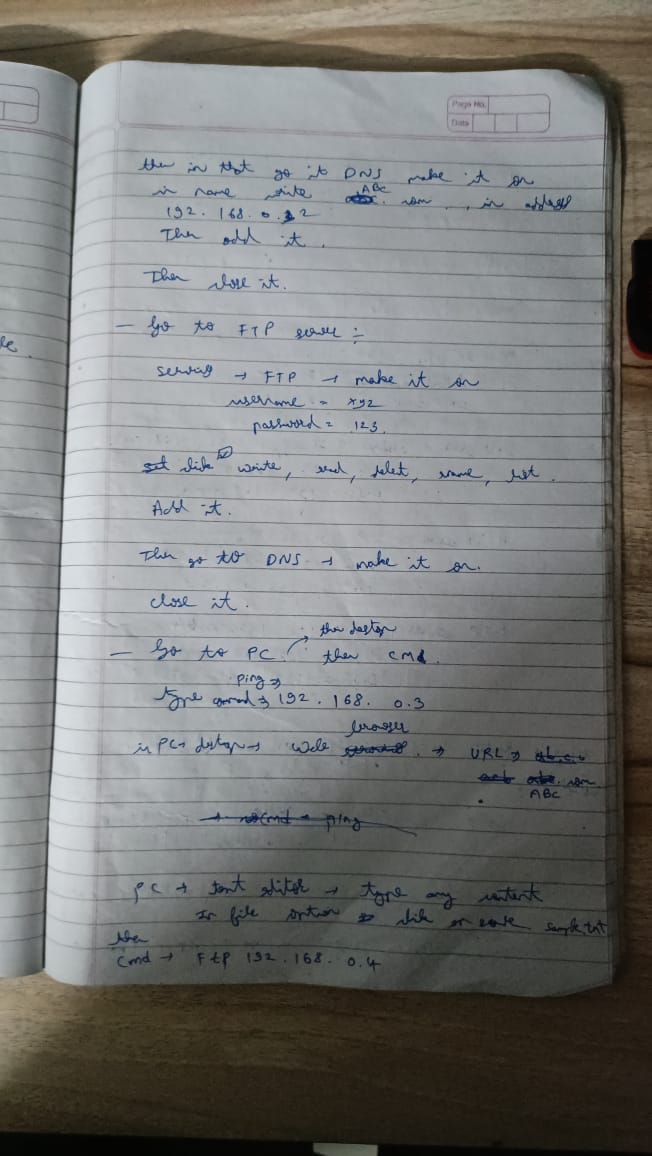 Page No.
Date
then in that go to DNS make it on
in name write ABC .com , in address
192. 168. 0. 2
Then add it.
Then close it.
— Go to FTP server :-
serving → FTP → make it on
username = xyz
password = 123.
click ☑ write, read, delet, rename, list.
Add it.
Then go to DNS → make it on.
close it.
the destop
— Go to PC. then cmd.
Ping →
Type → 192. 168. 0.3
browser
in PC → destop → Web → URL →
.com
ABC
→ cmd → ping
PC → text editor → type any content
In file option click on save sample.txt
then
Cmd → Ftp 192. 168. 0.4
le.